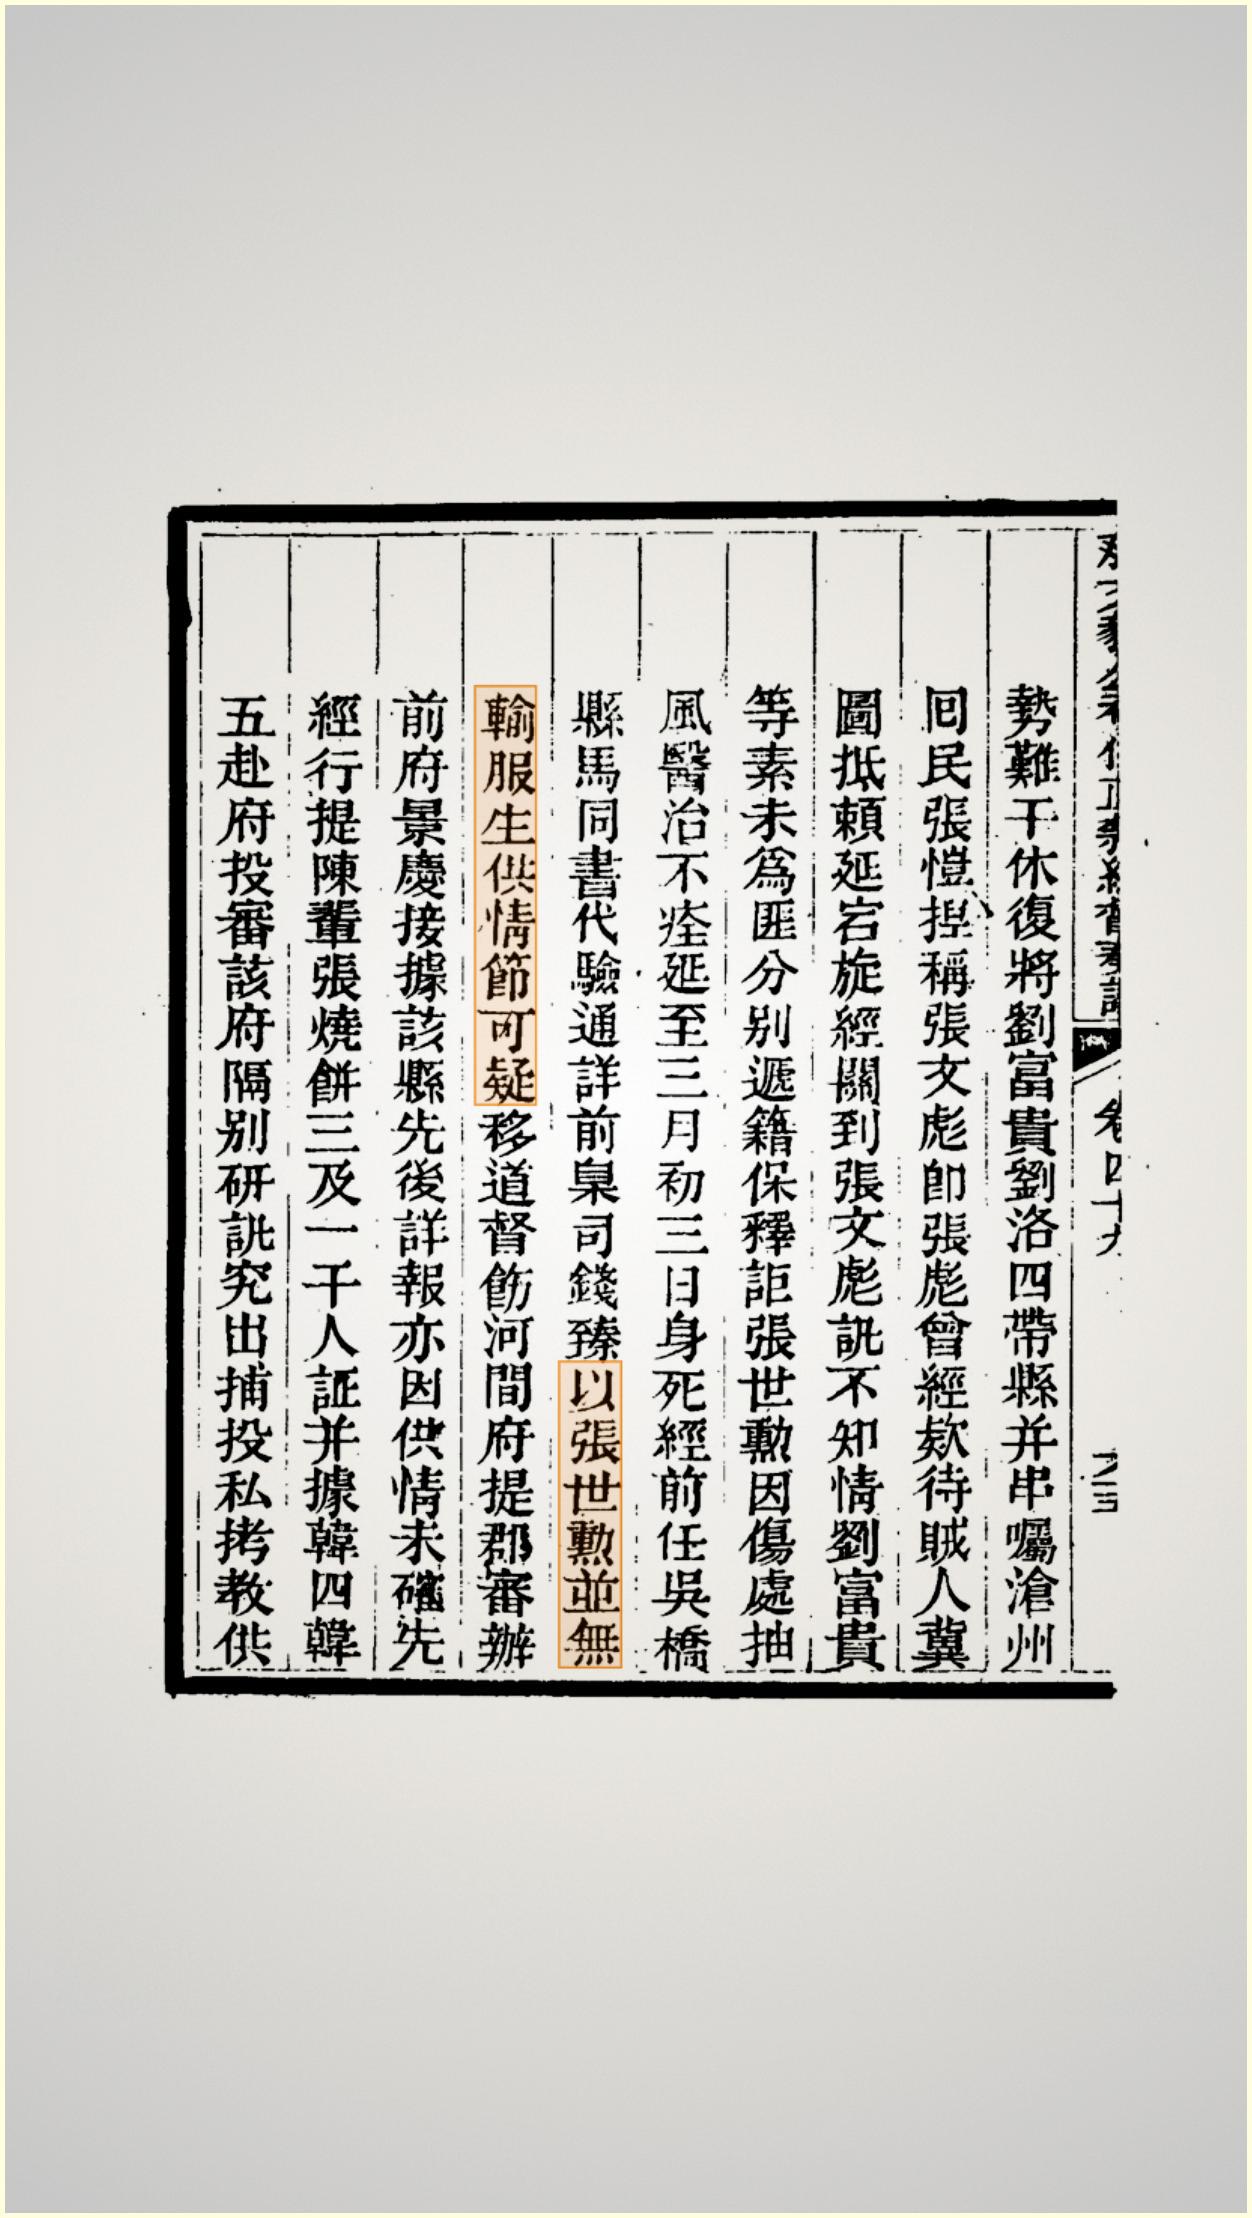 卷四十九
勢難干休復將劉富貴劉洛四帶縣并串囑滄州
回民張愷揑稱張文彪卽張彪曾經欵待賊人冀
圖抵賴延宕旋經關到張文彪訊不知情劉富貴
等素未爲匪分别遞籍保釋詎張世勳因傷處抽
風醫治不痊延至三月初三日身死經前任吳橋
縣馬同書代驗通詳前臬司錢臻以張世勳並無
輸服生供情節可疑移道督飭河間府提郡審辦
前府景慶接據該縣先後詳報亦因供情未確先
經行提陳輦張燒餅三及一干人証并據韓四韓
五赴府投審該府隔别研訊究出捕投私拷教供